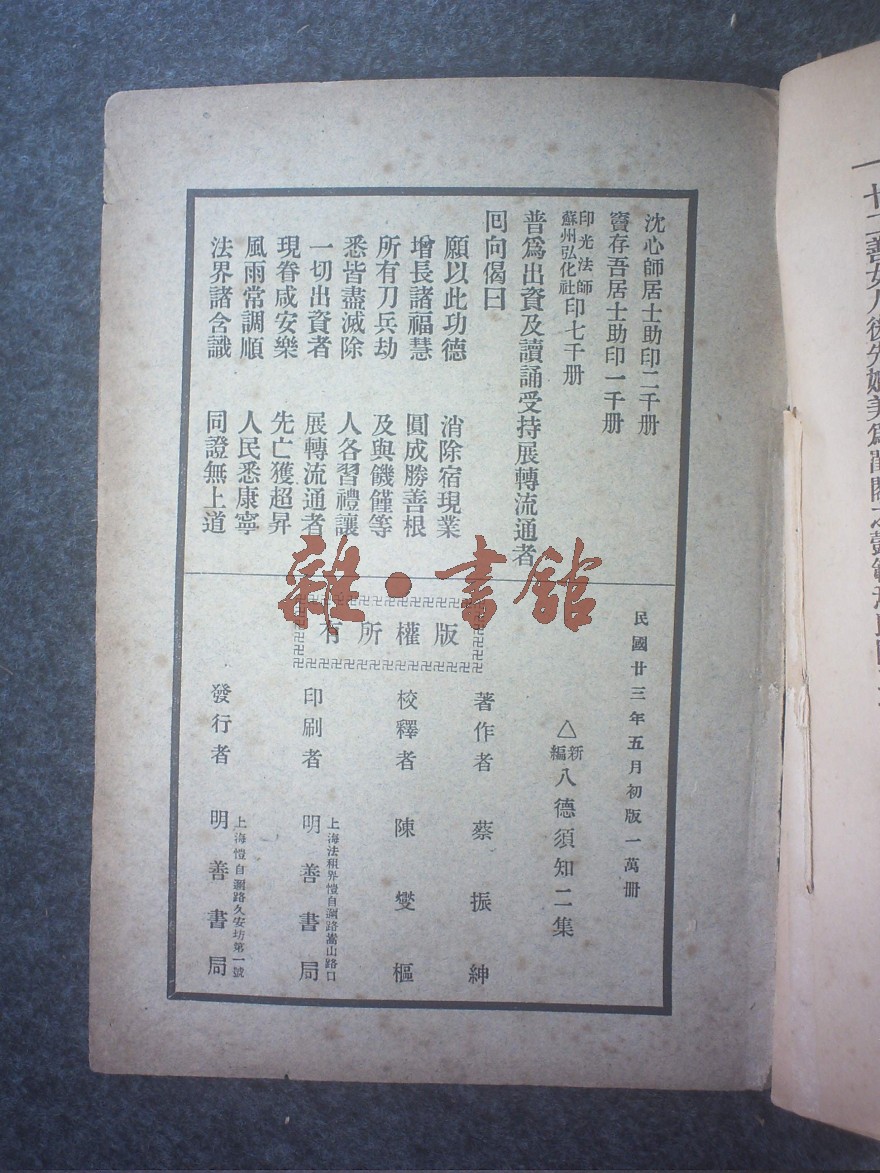 沈心師居士助印二千册
竇存吾居士助印一千册
印光法師
蘇州弘化社印七千册
普爲出資及讀誦受持展轉流通者
囘向偈曰
願以此功德　消除宿現業
增長諸福慧　圓成勝善根
所有刀兵劫　及與饑饉等
悉皆盡滅除　人各習禮讓
一切出資者　展轉流通者
現眷咸安樂　先亡獲超昇
風雨常調順　人民悉康寧
法界諸含識　同證無上道
民國廿三年五月初版一萬册
△新編八德須知二集
版權所有
著作者　蔡振紳
校釋者　陳燮樞
上海法租界愷自邇路嵩山路口
印刷者　明善書局
上海愷自邇路久安坊第一號
發行者　明善書局
雜·書館